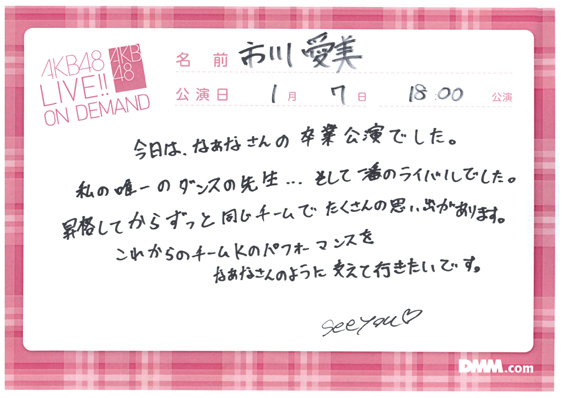 AKB48
LIVE!!
ON DEMAND
AKB
48
名前 市川愛美
公演日 1月 7日 18:00 公演
今日は、なぁなさんの卒業公演でした。
私の唯一のダンスの先生...そして一番のライバルでした。
昇格してからずっと同じチームでたくさんの思い出があります。
これからのチームKのパフォーマンスを
なぁなさんのように支えて行きたいです。
see you♡
DMM.com